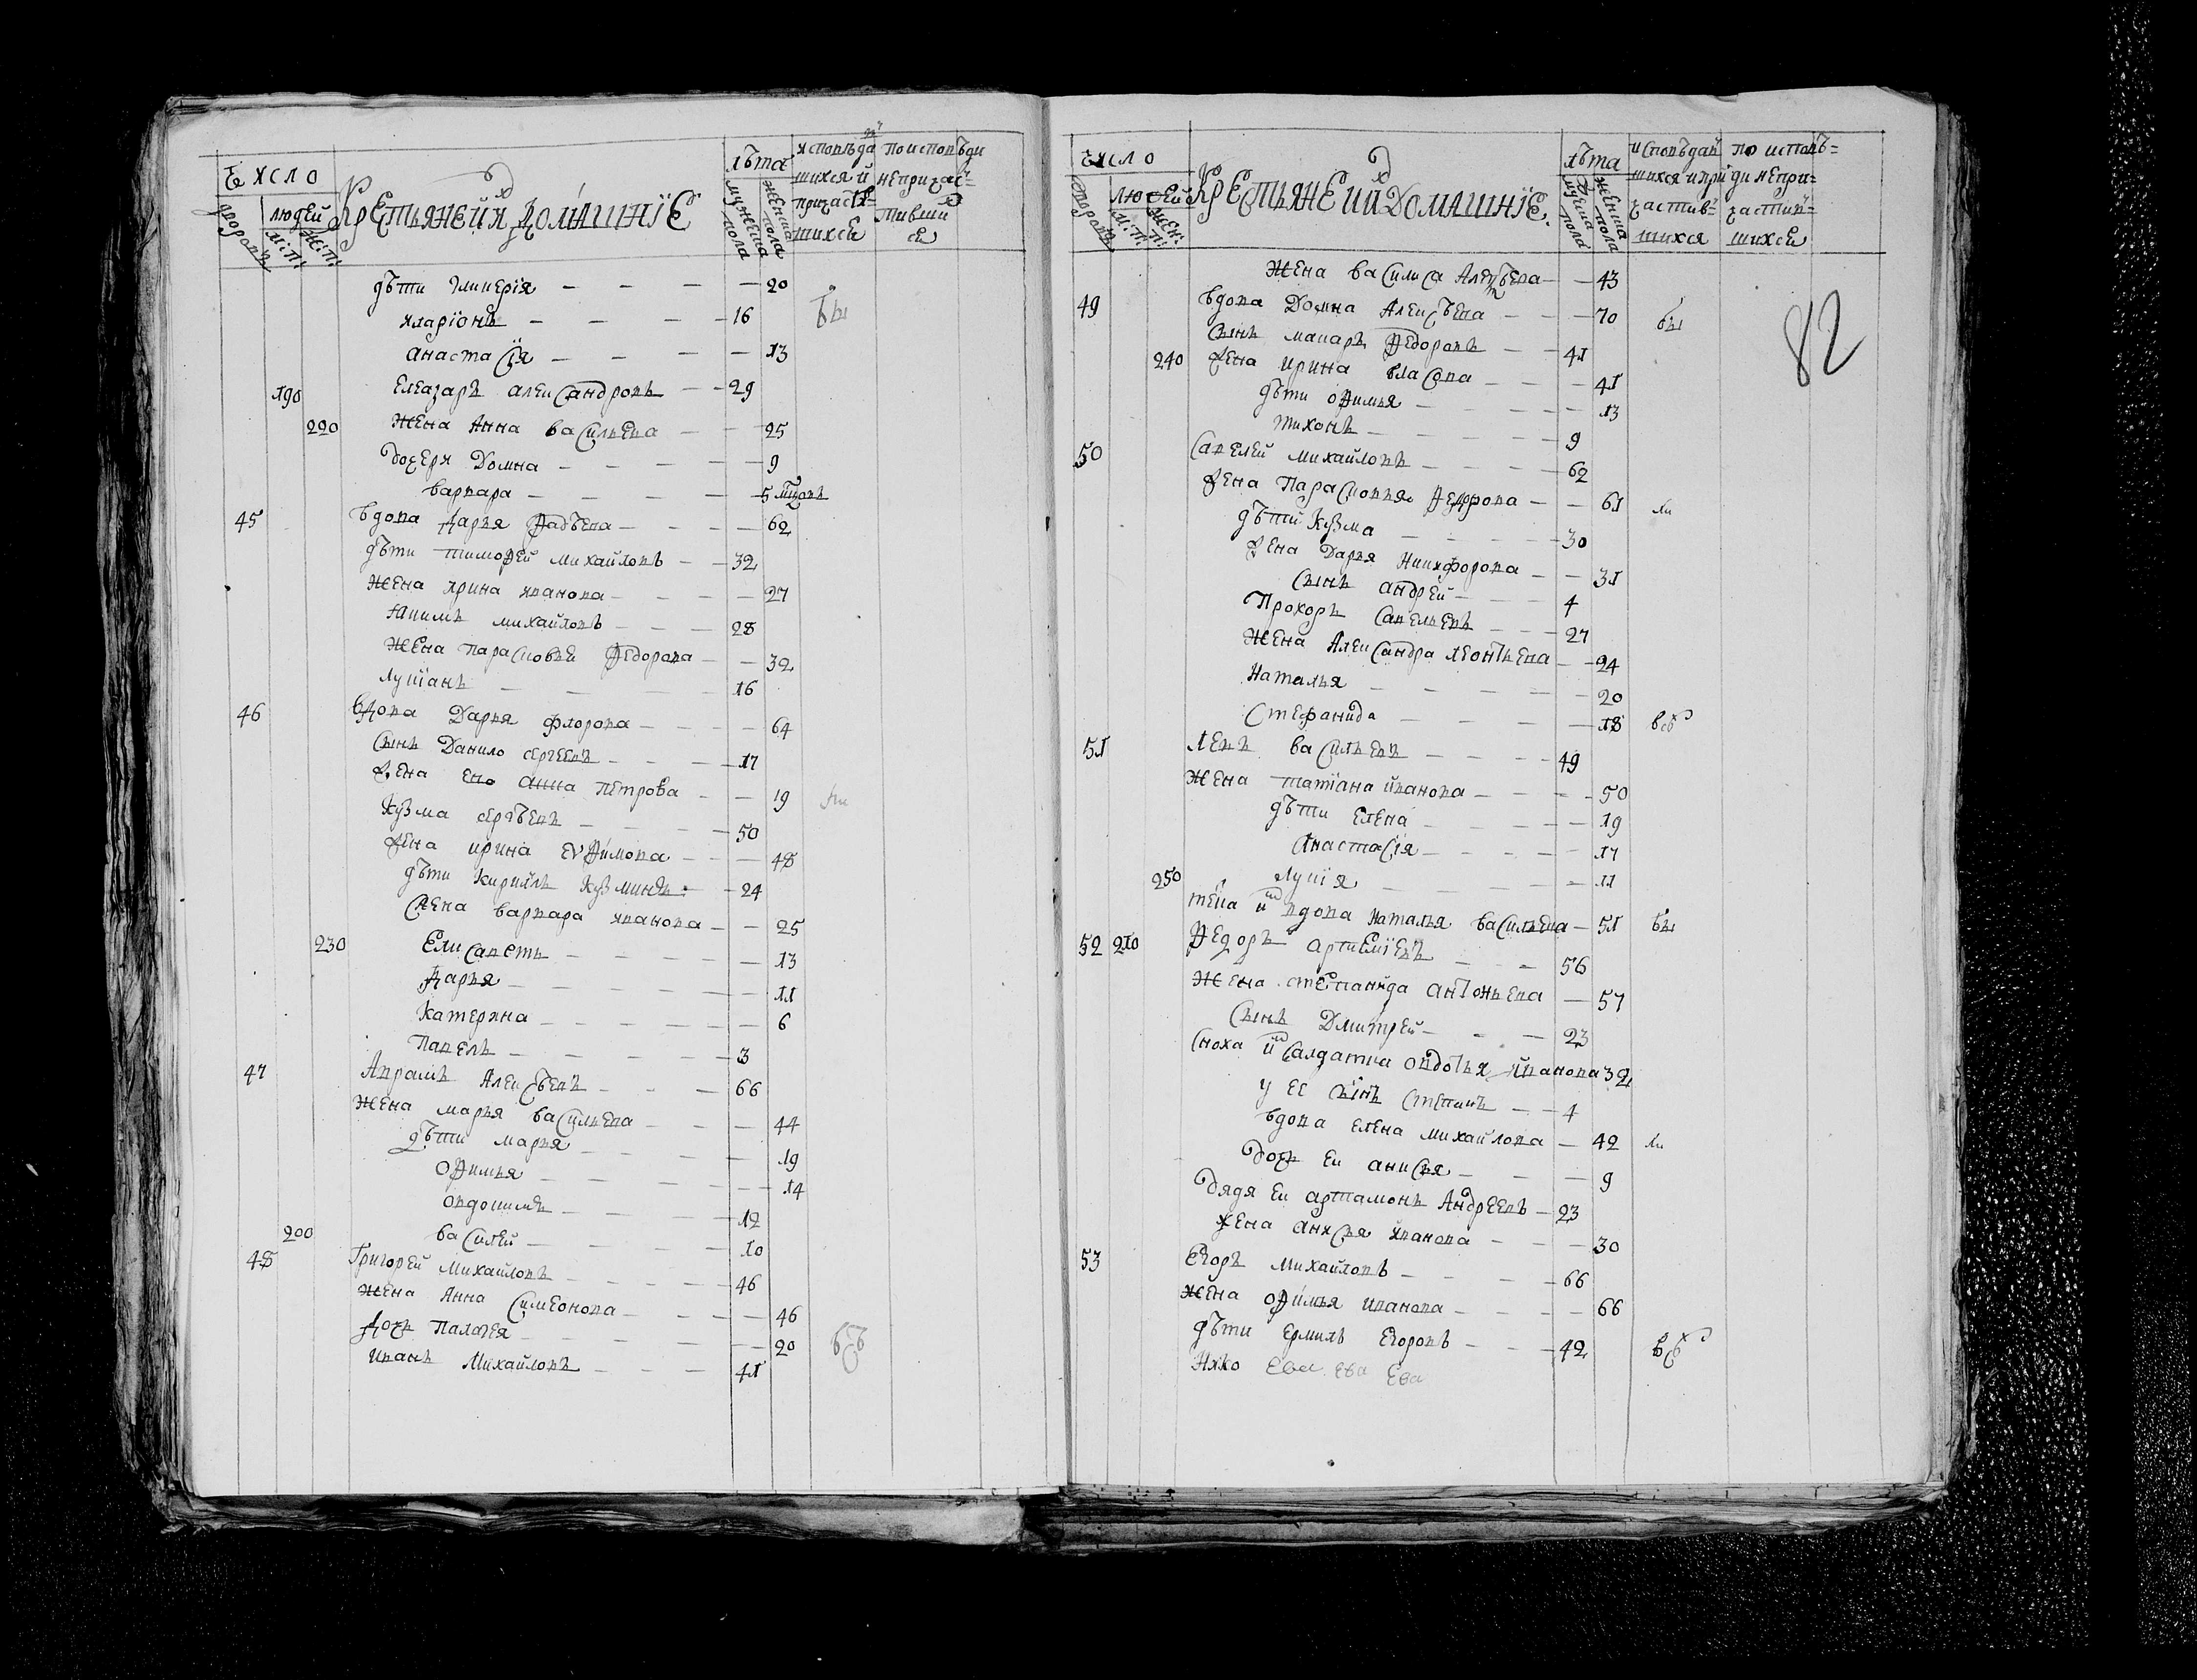 Число
дворовъ
людей
м: п:
ж: п:
Крестьяне и их домашнїе
лѣта
мужеска пола
женска пола
исповѣдавшихся и причастившихся
по исповѣди непричастившися
дѣти Гликерїя — — — — 20
Иларїонъ — — — — 16
Анастасїя — — — — 13
190 Елеазаръ Александровъ — — 29
220 Жена Анна Васильева — — 25
Дочери Домна — — — — 9
Варвара — — — — 5
45 Вдова Дарья Ѳадѣева — — — 62
дѣти Тимоѳей Михайловъ — — 32
Жена Ирина Иванова — — — 27
Якимъ Михайловъ — — — 28
Жена Парасковїя Ѳедорова — — 32
Лукїанъ — — — — 16
46 Вдова Дарья Флорова — — — 64
Сынъ Данило Сергеевъ — — — 17
Жена ево Анна Петрова — — 19
Кузма Сергѣевъ — — — — 50
Жена Ирина Еѵѳимова — — — 48
дѣти Кирилъ Кузминъ — — 24
Жена Варвара Иванова — — 25
230 Елисаветъ — — — — 13
Дарья — — — — 11
Катерина — — — — 6
Павелъ — — — — 3
47 Аврамъ Алексѣевъ — — — 66
Жена Марья Васильева — — — 44
дѣти Марья — — — — 19
Оѳимья — — — — 14
Овдокимъ — — — — 12
200 Василей — — — — 10
48 Григорей Михайловъ — — — 46
Жена Анна Симеонова — — — 46
Дочь Палагея — — — — 20
Иванъ Михайловъ — — — 41
Число
дворовъ
людей
м: п:
жен: п:
Крестьяне и их домашнїе
лѣта
мужеска пола
женска пола
исповѣдавшихся и причастившихся
по исповѣди непричастившихся
82
Жена Василиса Алексѣева — — 43
49 Вдова Домна Алексѣева — — — 70
Сынъ Макаръ Ѳедоровъ — — 41
240 Жена Ирина Власова — — — 41
дѣти Оѳимья — — — — 13
Тихонъ — — — — 9
50 Савелей Михайловъ — — — 62
Жена Парасковья — — 61
дѣти Кузма — — — — 30
Жена Дарья Никифорова — — 31
Сынъ Андрей — — — 4
Прохоръ Савельевъ — — — 27
Жена Александра Леонтьева — — 24
Наталья — — — — 20
Стефанида — — — — 18
51 Левъ Васильевъ — — — — 49
Жена Татїана Иванова — — — 50
дѣти Елена — — — — 19
Анастасїя — — — — 17
250 Лукїя — — — — 11
теща их вдова Наталья Васильева — 51
52 210 Ѳедоръ Артемїевъ — — — 56
Жена Степанида Антоньева — 57
Сынъ Дмитрей — — — 23
Сноха их Салдатка Овдотья Иванова 32
у ее сынъ Степанъ — — 4
Вдова Елена Михайлова — 42
Дочь ея Анисья — — — 9
Дядя ея Артамонъ Андреевъ — 23
Жена Анисья Иванова — — — 30
53 Егоръ Михайловъ — — — 66
Жена Оѳимья Иванова — — — 66
дѣти Ермилъ Егоровъ — — — 42
Ева Ева Ева